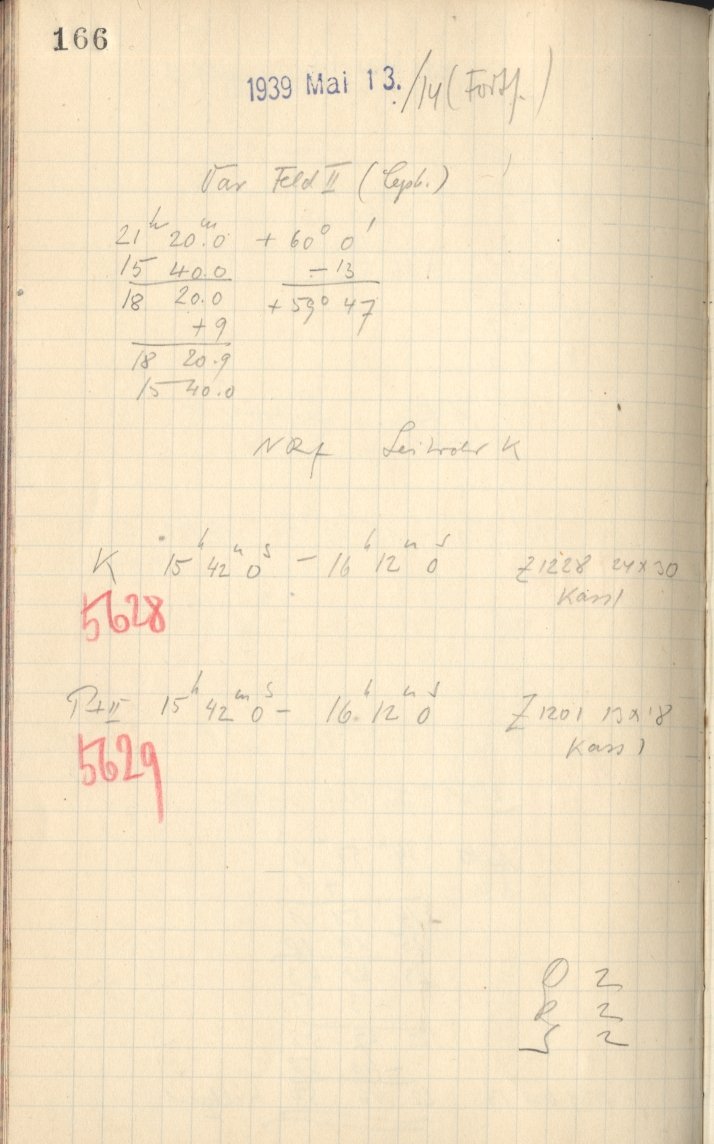 166
1939 Mai 13./14 (Forts.)
Var Feld II (Ceph.)
21ʰ 20ᵐ.0 + 60° 0'
15 40.0 - 13
18 20.0 + 59° 47
+ 9
18 20.9
15 40.0
NRf K
K 15ʰ 42ᵐ 0ˢ - 16ʰ 12ᵐ 0ˢ Z1228 24x30
Kass 1
5628
15ʰ 42ᵐ 0ˢ - 16.ʰ 12ᵐ 0ˢ Z1201 13x18
Kass 1
5629
O 2
R 2
S 2